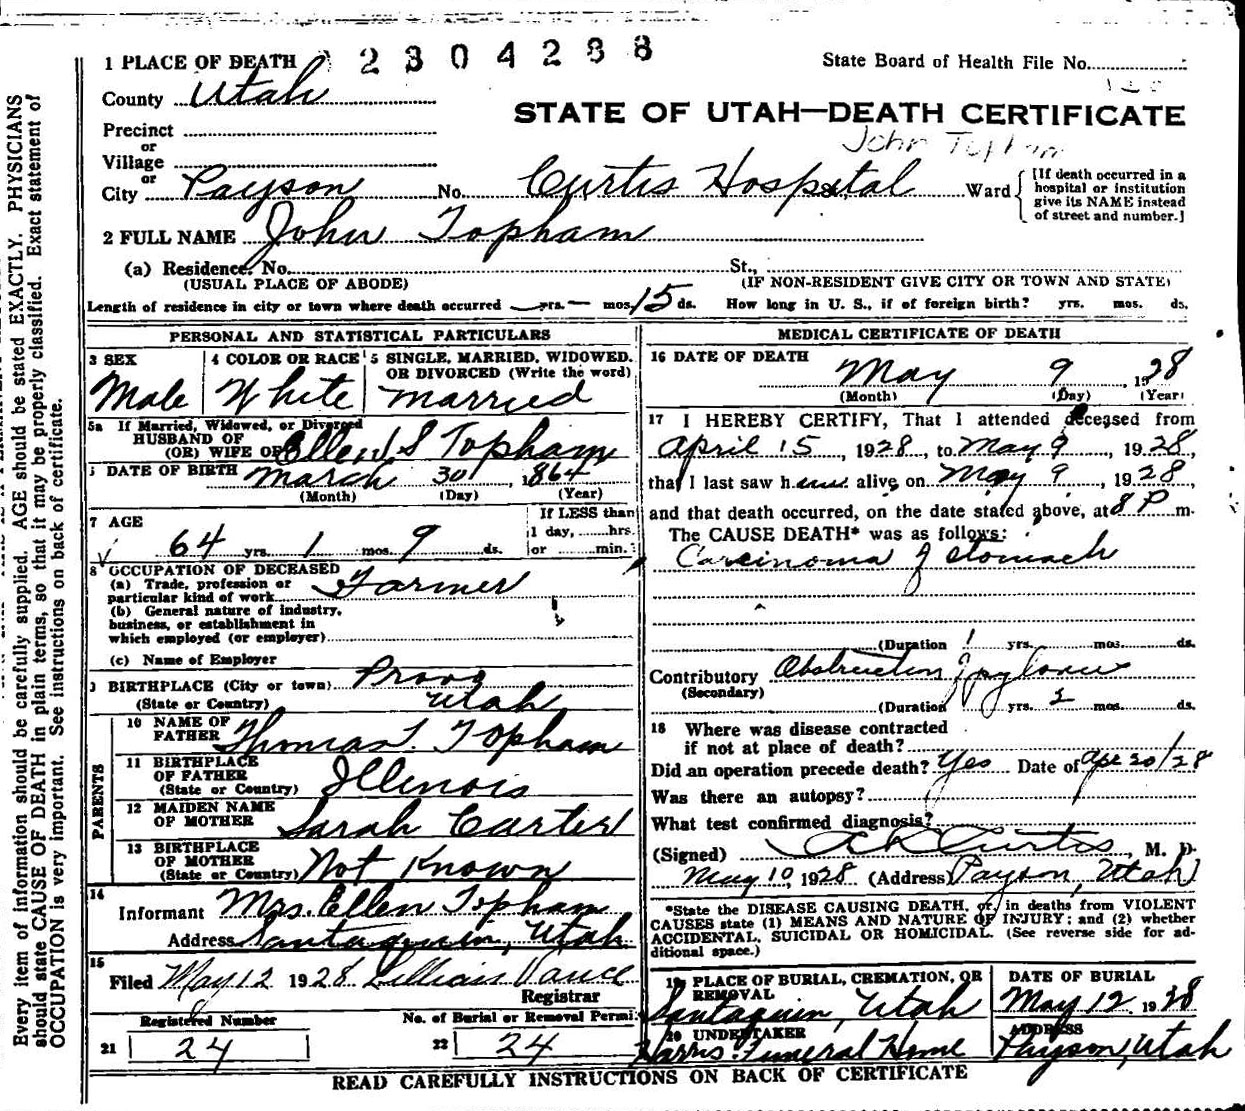 1 PLACE OF DEATH 2304288
State Board of Health File No.
County Utah
STATE OF UTAH—DEATH CERTIFICATE
Precinct
John Topham
or
Village
or
City Payson No. Curtis Hospital St., Ward
[If death occurred in a hospital or institution give its NAME instead of street and number.]
2 FULL NAME John Topham
(a) Residence. No. St.,
(USUAL PLACE OF ABODE) (IF NON-RESIDENT GIVE CITY OR TOWN AND STATE)
Length of residence in city or town where death occurred — yrs. — mos. 15 ds. How long in U. S., if of foreign birth? yrs. mos. ds.
PERSONAL AND STATISTICAL PARTICULARS
3 SEX
Male
4 COLOR OR RACE
White
5 SINGLE, MARRIED, WIDOWED, OR DIVORCED (Write the word)
Married
5a If Married, Widowed, or Divorced
HUSBAND OF
(OR) WIFE OF Ellen S Topham
DATE OF BIRTH March 30, 1864
(Month) (Day) (Year)
7 AGE
64 yrs. 1 mos. 9 ds.
If LESS than
1 day, hrs.
or min.
8 OCCUPATION OF DECEASED
(a) Trade, profession or
particular kind of work Farmer
(b) General nature of industry,
business, or establishment in
which employed (or employer)
(c) Name of Employer
9 BIRTHPLACE (City or town) Provo
(State or Country) Utah
PARENTS
10 NAME OF FATHER Thomas Topham
11 BIRTHPLACE OF FATHER
(State or Country) Illinois
12 MAIDEN NAME OF MOTHER Sarah Carter
13 BIRTHPLACE OF MOTHER
(State or Country) Not Known
14
Informant Mrs. Ellen Topham
Address Santaquin, Utah
15
Filed May 12 1928 Lillian Vance
Registrar
Registered Number No. of Burial or Removal Permit
21 24 22 24
MEDICAL CERTIFICATE OF DEATH
16 DATE OF DEATH
May 9, 1928
(Month) (Day) (Year)
17 I HEREBY CERTIFY, That I attended deceased from
April 15, 1928, to May 9, 1928,
that I last saw him alive on May 9, 1928,
and that death occurred, on the date stated above, at 8 P m.
The CAUSE DEATH* was as follows:
Carcinoma of stomach
(Duration 1 yrs. mos. ds.
Contributory Obstruction of pylorus
(Secondary)
(Duration yrs. 2 mos. ds.
18 Where was disease contracted
if not at place of death?
Did an operation precede death? Yes Date of Apr 20/28
Was there an autopsy?
What test confirmed diagnosis?
(Signed) Curtis, M. D.
May 10, 1928 (Address) Payson, Utah
*State the DISEASE CAUSING DEATH, or, in deaths from VIOLENT
CAUSES state (1) MEANS AND NATURE OF INJURY; and (2) whether
ACCIDENTAL, SUICIDAL OR HOMICIDAL. (See reverse side for ad-
ditional space.)
19 PLACE OF BURIAL, CREMATION, OR REMOVAL
Santaquin, Utah
DATE OF BURIAL
May 12 1928
20 UNDERTAKER
Harris Funeral Home
ADDRESS
Payson, Utah
READ CAREFULLY INSTRUCTIONS ON BACK OF CERTIFICATE
Every item of information should be carefully supplied. AGE should be stated EXACTLY. PHYSICIANS
should state CAUSE OF DEATH in plain terms, so that it may be properly classified. Exact statement of
OCCUPATION is very important. See instructions on back of certificate.